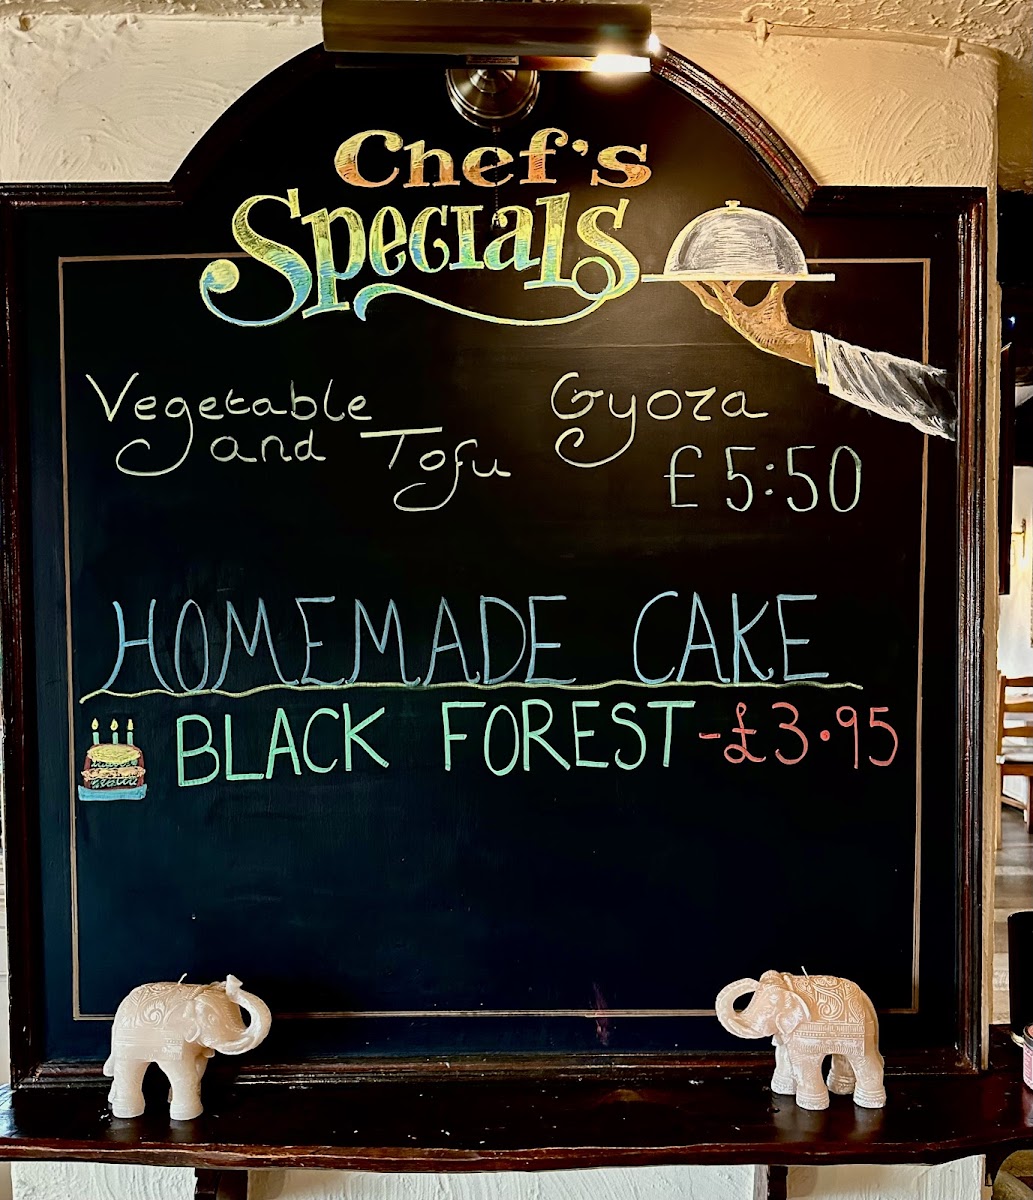 Chef's
Specials
Vegetable Gyoza
and Tofu
£5:50
HOMEMADE CAKE
BLACK FOREST - £3.95